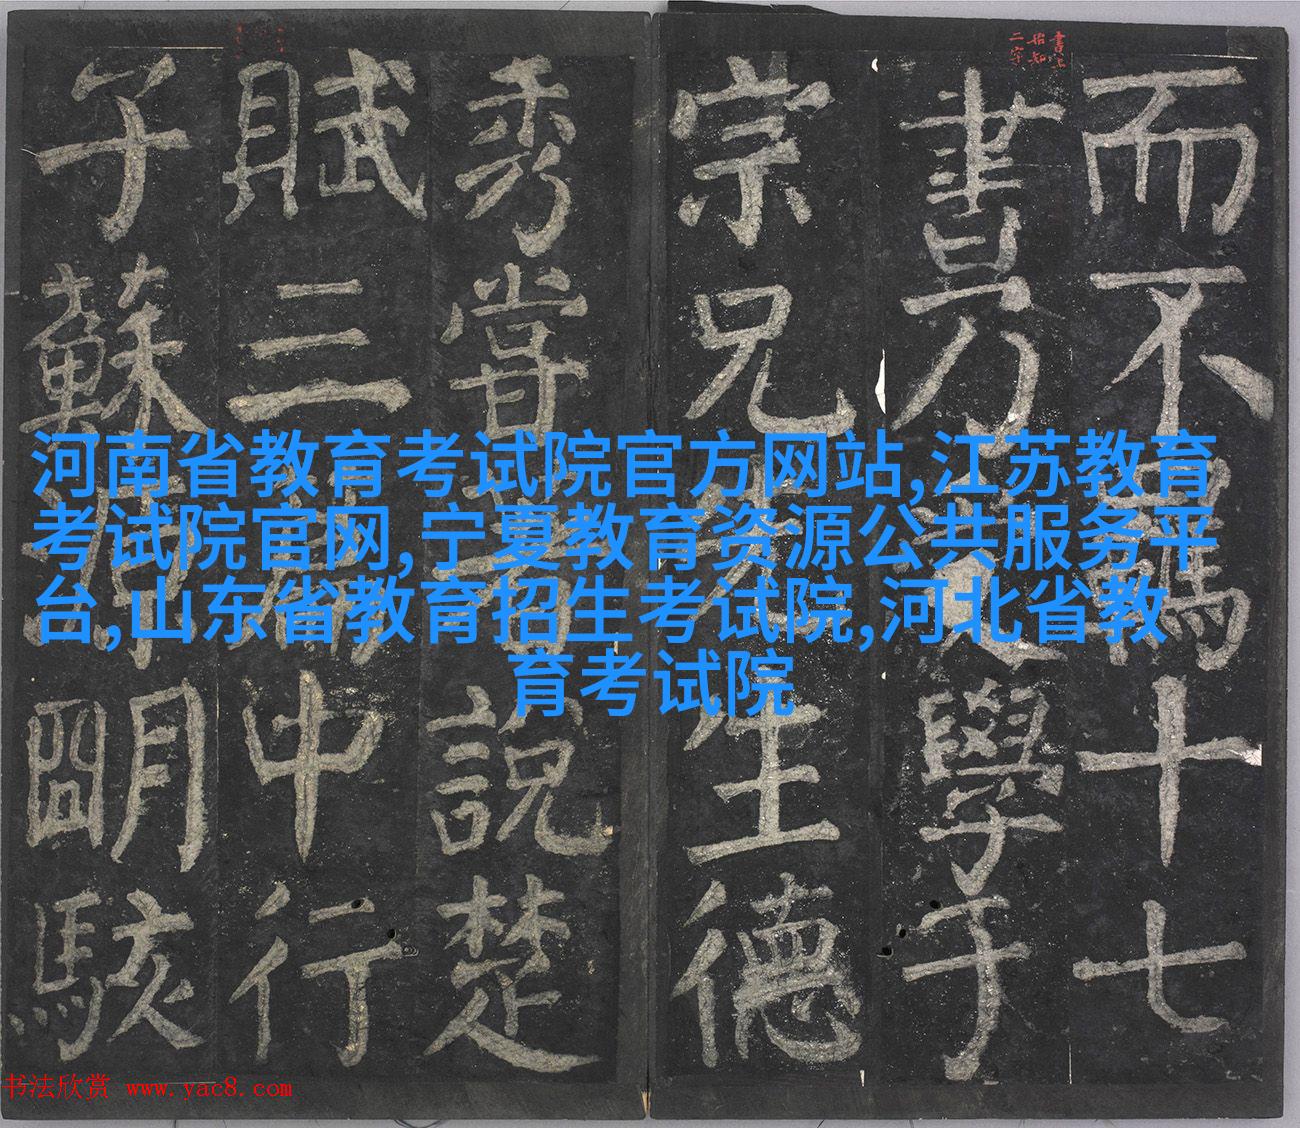 河南省教育考试院官方网站,江苏教育
考试院官网,宁夏教育资源公共服务平
台,山东省教育招生考试院,河北省教
育考试院
而不十七
書乃學于
宗兄生德
秀嘗說楚
賦三中行
子蘇明駭
书法欣赏 www.yac8.com